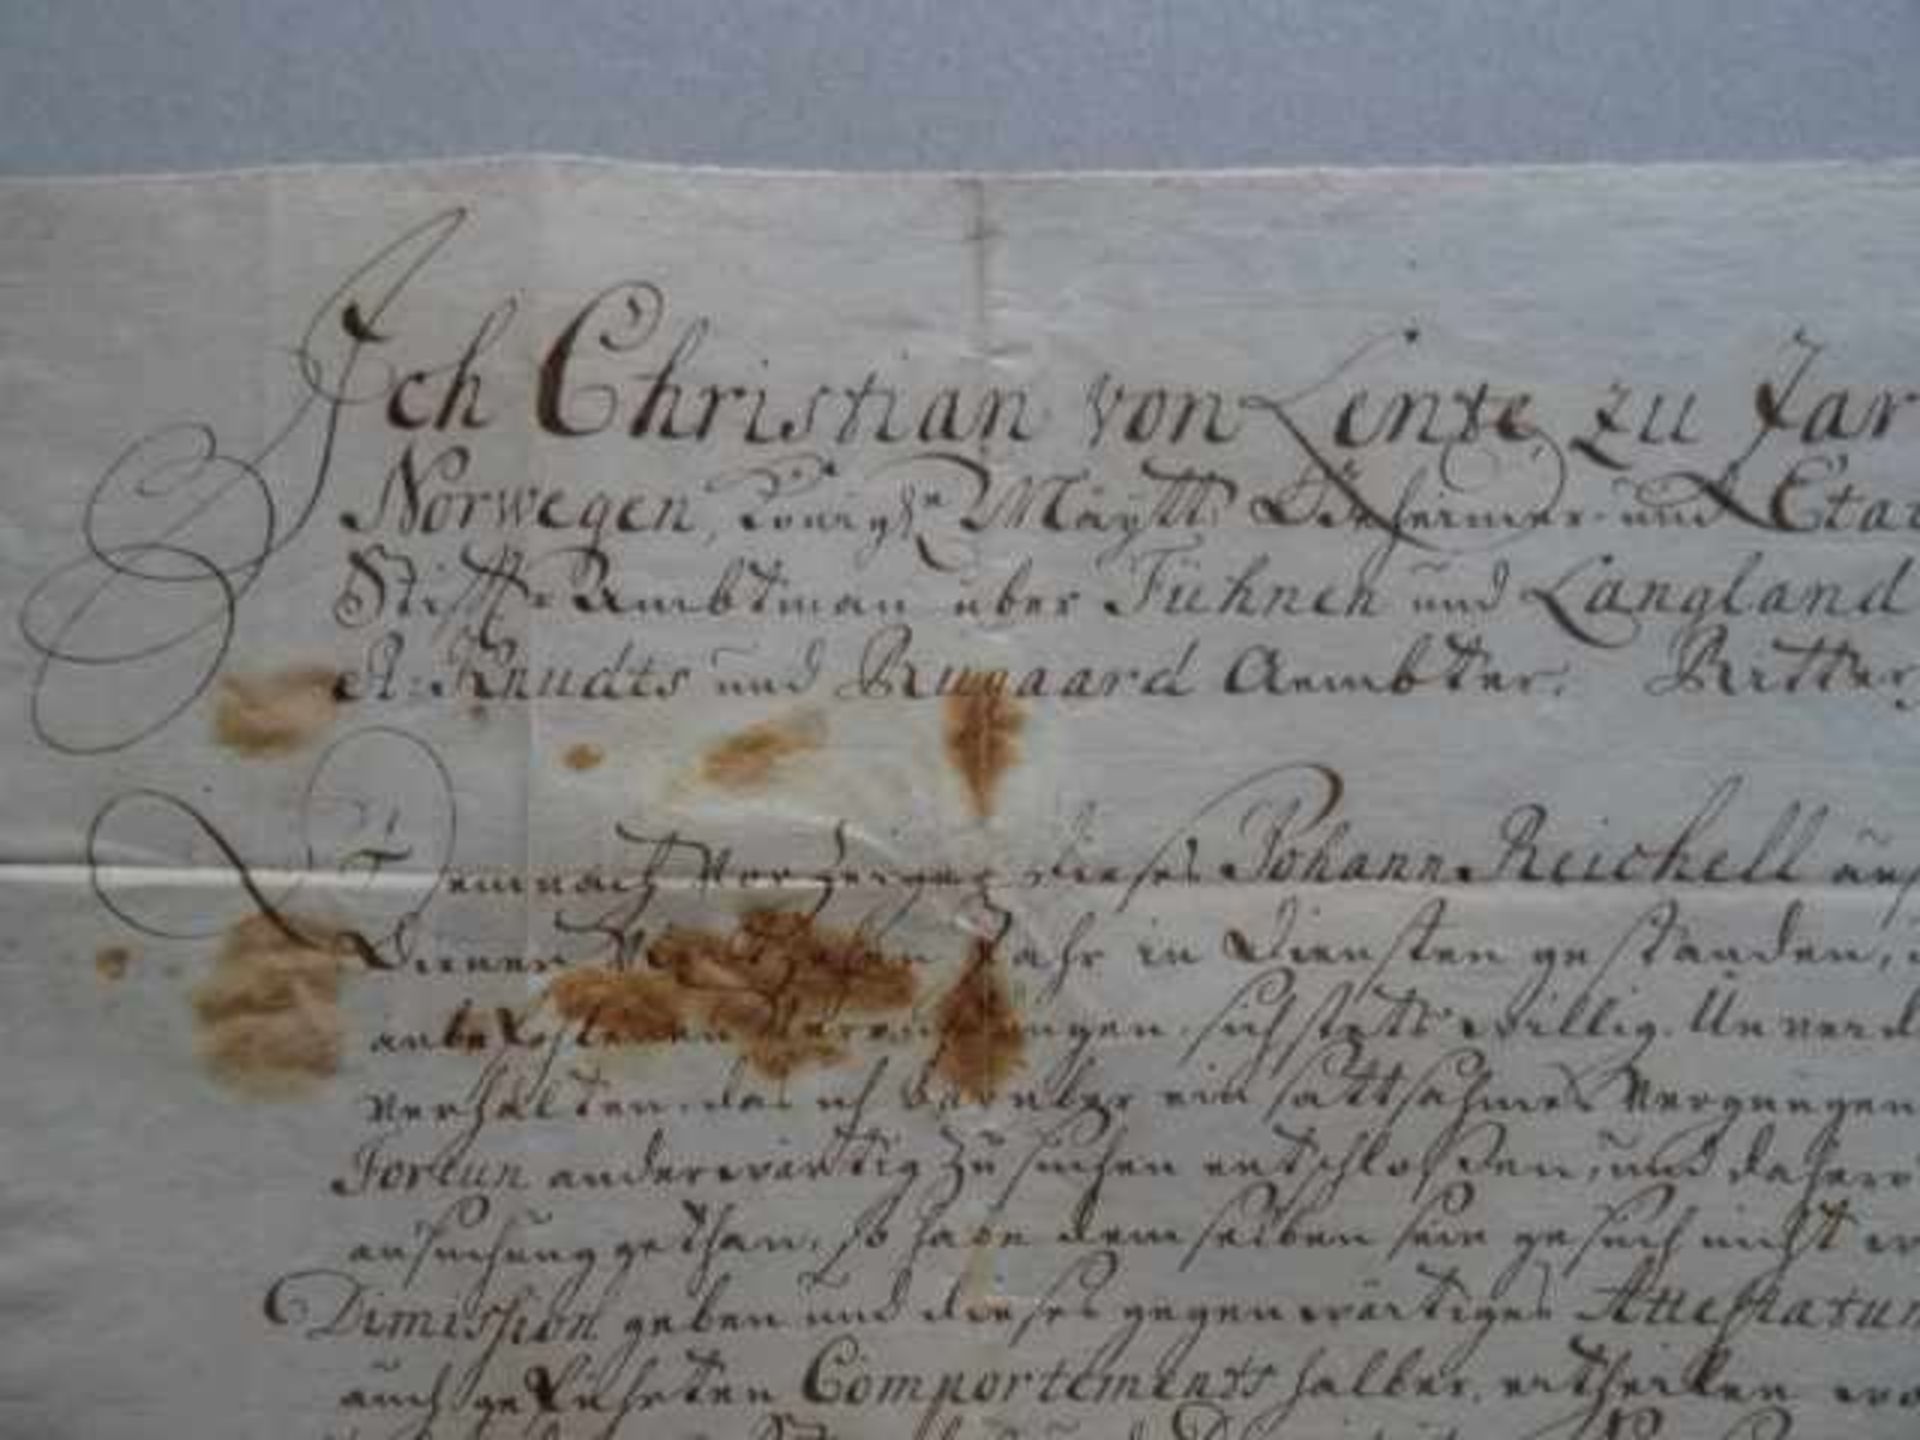 Ich Christian von Lente, zu Sar
Norwegen, Königl. Maytt. Geheimer- und Etat
Stifft-Ambtman über Fühnen und Langland
St: Knudts und Rugaard Aembter. Ritter,
Demnach Vorzeiger dieses Johann Reichell auf
Diener Jahr in Diensten gestanden,
anbefohlenen sich stets willig. Unverd
Verhalten, das ich darüber ein sattsahmes Vergnügen
Fortun anderwärtig zu suchen entschlossen, und dahero
ansuchung gethan, So habe demselben sein gesuch nicht
Dimission geben und dieses gegenwärtiges Attestatum
auch geführten Comportements halber, ertheilen